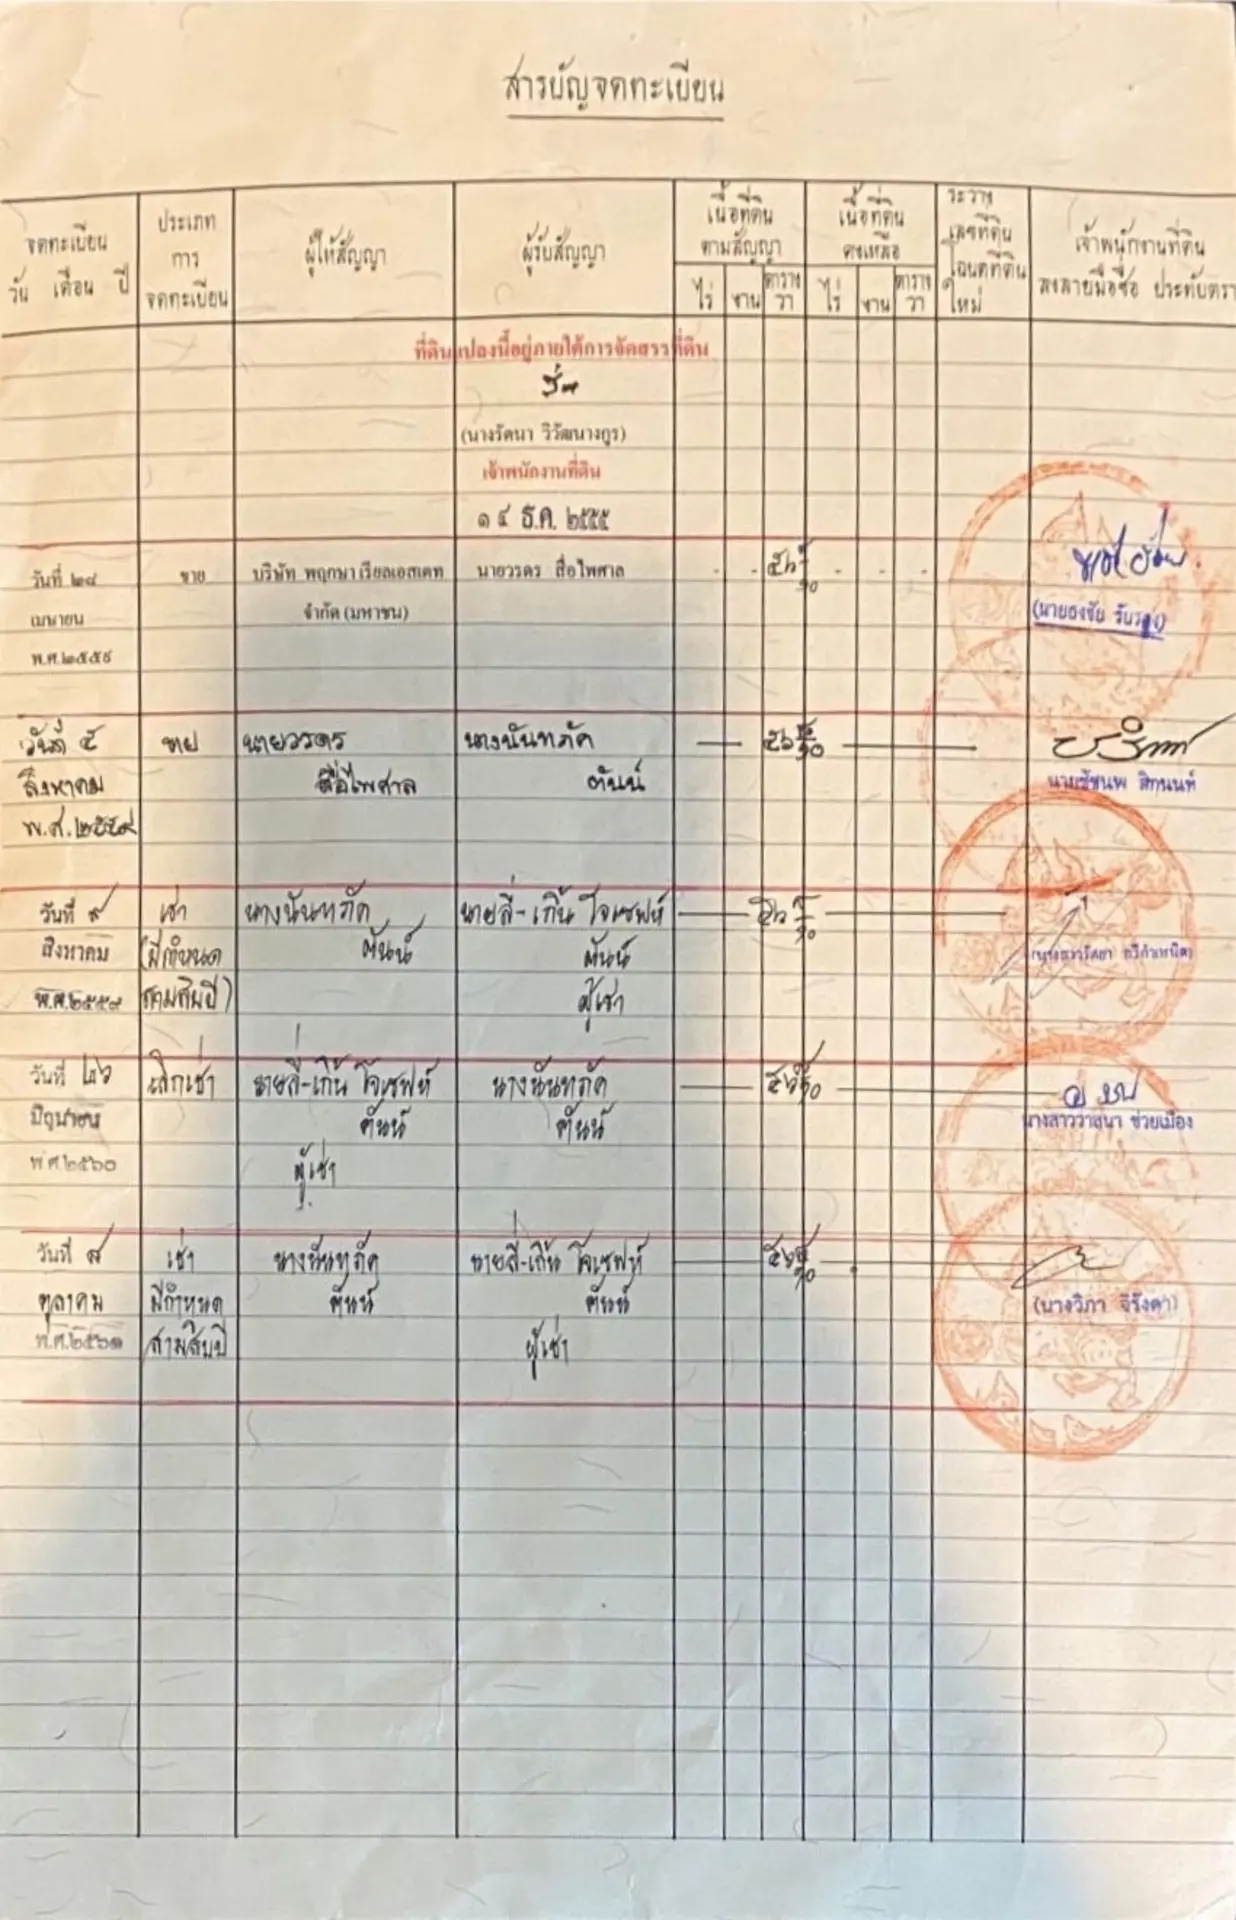 สารบัญจดทะเบียน
จดทะเบียน
วัน เดือน ปี
ประเภท
การ
จดทะเบียน
ผู้ให้สัญญา
ผู้รับสัญญา
เนื้อที่ดิน
ตามสัญญา
ไร่ งาน ตาราง
วา
เนื้อที่ดิน
คงเหลือ
ไร่ งาน ตาราง
วา
ระวาง
เลขที่ดิน
โฉนดที่ดิน
ใหม่
เจ้าพนักงานที่ดิน
ลงลายมือชื่อ ประทับตรา
ที่ดินแปลงนี้อยู่ภายใต้การจัดสรรที่ดิน
(นางรัตนา วิวัฒนางกูร)
เจ้าพนักงานที่ดิน
๑๔ ธ.ค. ๒๕๕๕
วันที่ ๒๘ ขาย บริษัท พฤกษา เรียลเอสเตท นายวรดร สื่อไพศาล - - ๕๖ - - - -
เมษายน จำกัด (มหาชน)
พ.ศ.๒๕๕๙
วันที่ ๕ ขาย นายวรดร นางนันทภัค ๕๖
สิงหาคม สื่อไพศาล ตันน์ นายชัชนพ
พ.ศ.๒๕๕๙
วันที่ ๙ เช่า นางนันทภัค นายลี่-เกิ้น โจเซฟห์ ๕๖
สิงหาคม (มีกำหนด ตันน์ ตันน์
พ.ศ.๒๕๕๙ สามสิบปี) ผู้เช่า
วันที่ ๒๖ เลิกเช่า นายลี่-เกิ้น โจเซฟห์ นางนันทภัค ๕๖
มิถุนายน ตันน์ ตันน์ นางสาววาสนา ช่วยเมือง
พ.ศ.๒๕๖๐ ผู้เช่า
วันที่ ๙ เช่า นางนันทภัค นายลี่-เกิ้น โจเซฟห์ ๕๖
ตุลาคม มีกำหนด ตันน์ ตันน์ (นางวิภา จิรังดา)
พ.ศ.๒๕๖๑ สามสิบปี ผู้เช่า